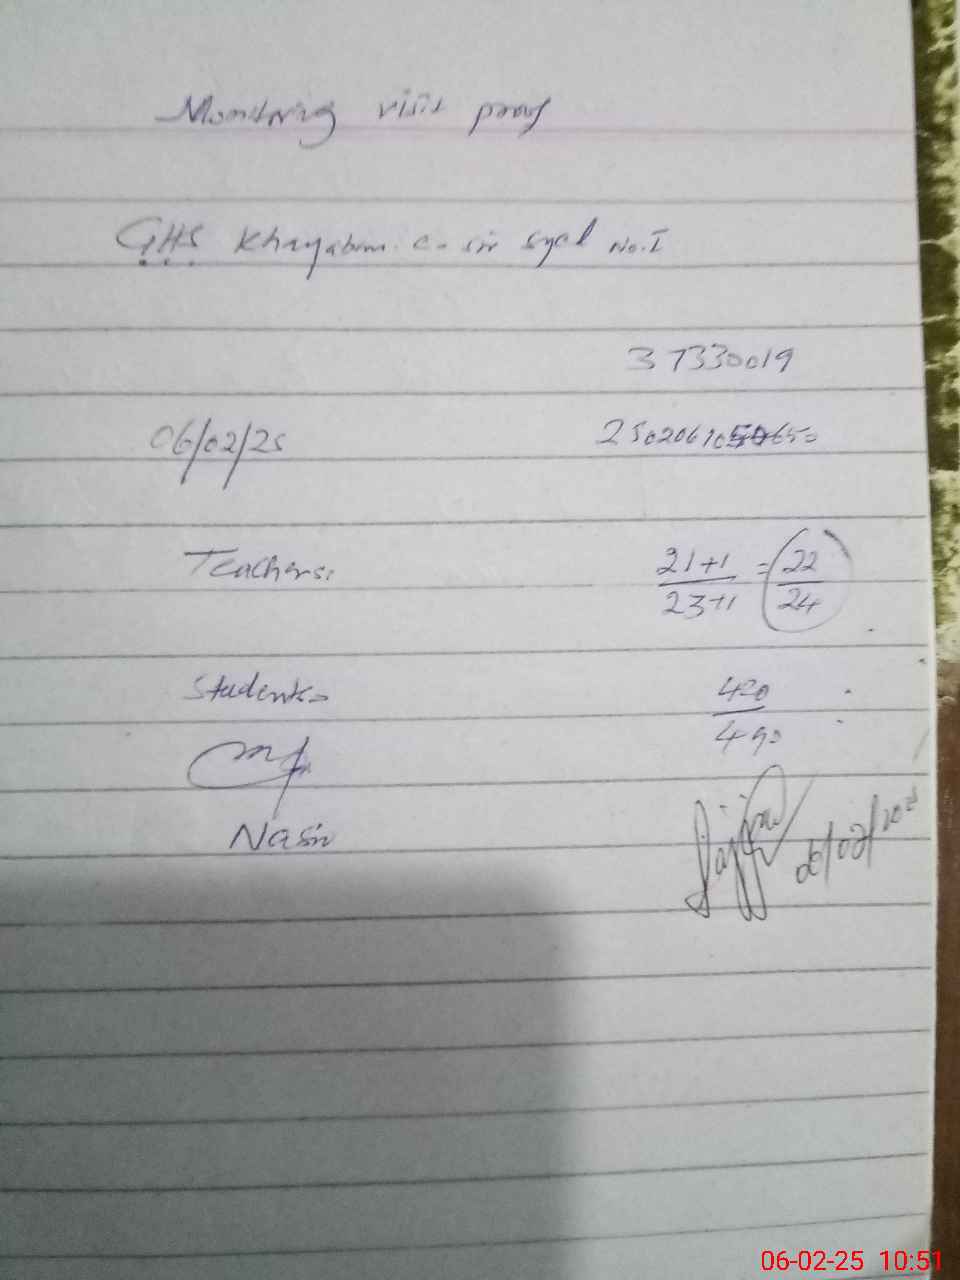 Monitoring visit proof
GHS Khayaban. e- sir syed No.I
37330019
06/02/25
Teachers:
21+1 = 22
23+1 24
Students
420
490
Nasir
06/02/2025
06-02-25 10:51